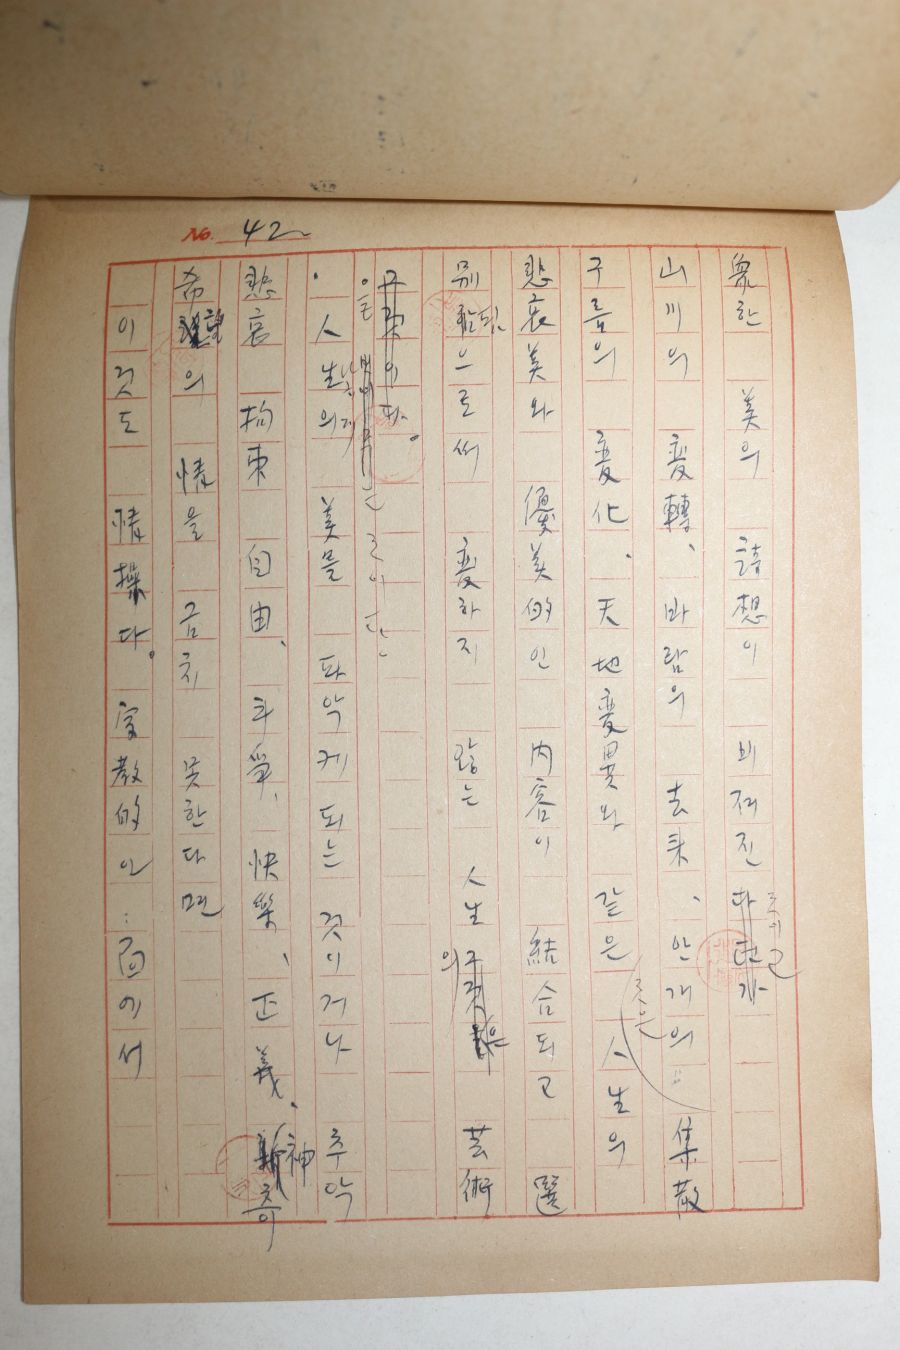 No. 42
象한 美의 詩想이 비져진다
山川의 変轉、바람의 去来、안개의 集散
구름의 変化、天地変異와 같은 人生의
悲哀美와 優美的인 内容이 結合되고 選
別됨으로써 変하지 않는 人生의 芸術

人生의 美를 파악케 되는 것이거나 추악
悲哀 拘束 自由、斗爭、快樂、正義、神奇
希望의 情을 금치 못한다면
이것도 情操다。宗教的인 面에서